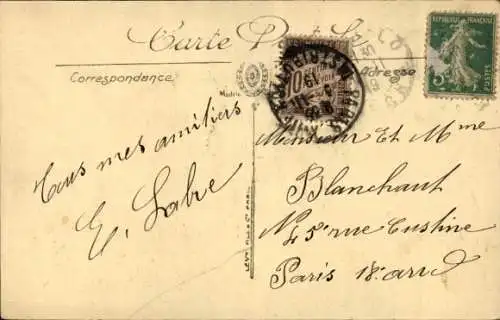 Carte
Correspondance
Adresse
RÉPUBLIQUE FRANÇAISE
5c
POSTES
10
PARIS
Tous mes amitiers
E. Labre
Monsieur et Mme
Blanchaut
No 45 rue Custine
Paris 18e arrd